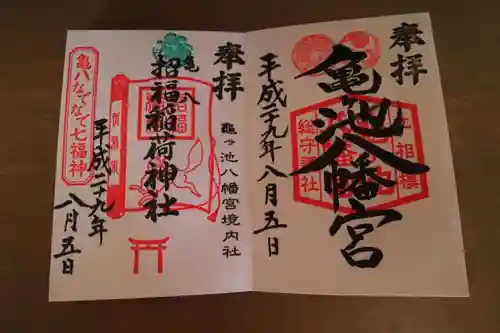 奉拝
亀池八幡宮
相模
総守護社
平成二十九年八月五日
奉拝
亀八
招福稲荷神社
招福
亀ヶ池八幡宮境内社
亀八なでなで七福神
平成二十九年
八月五日